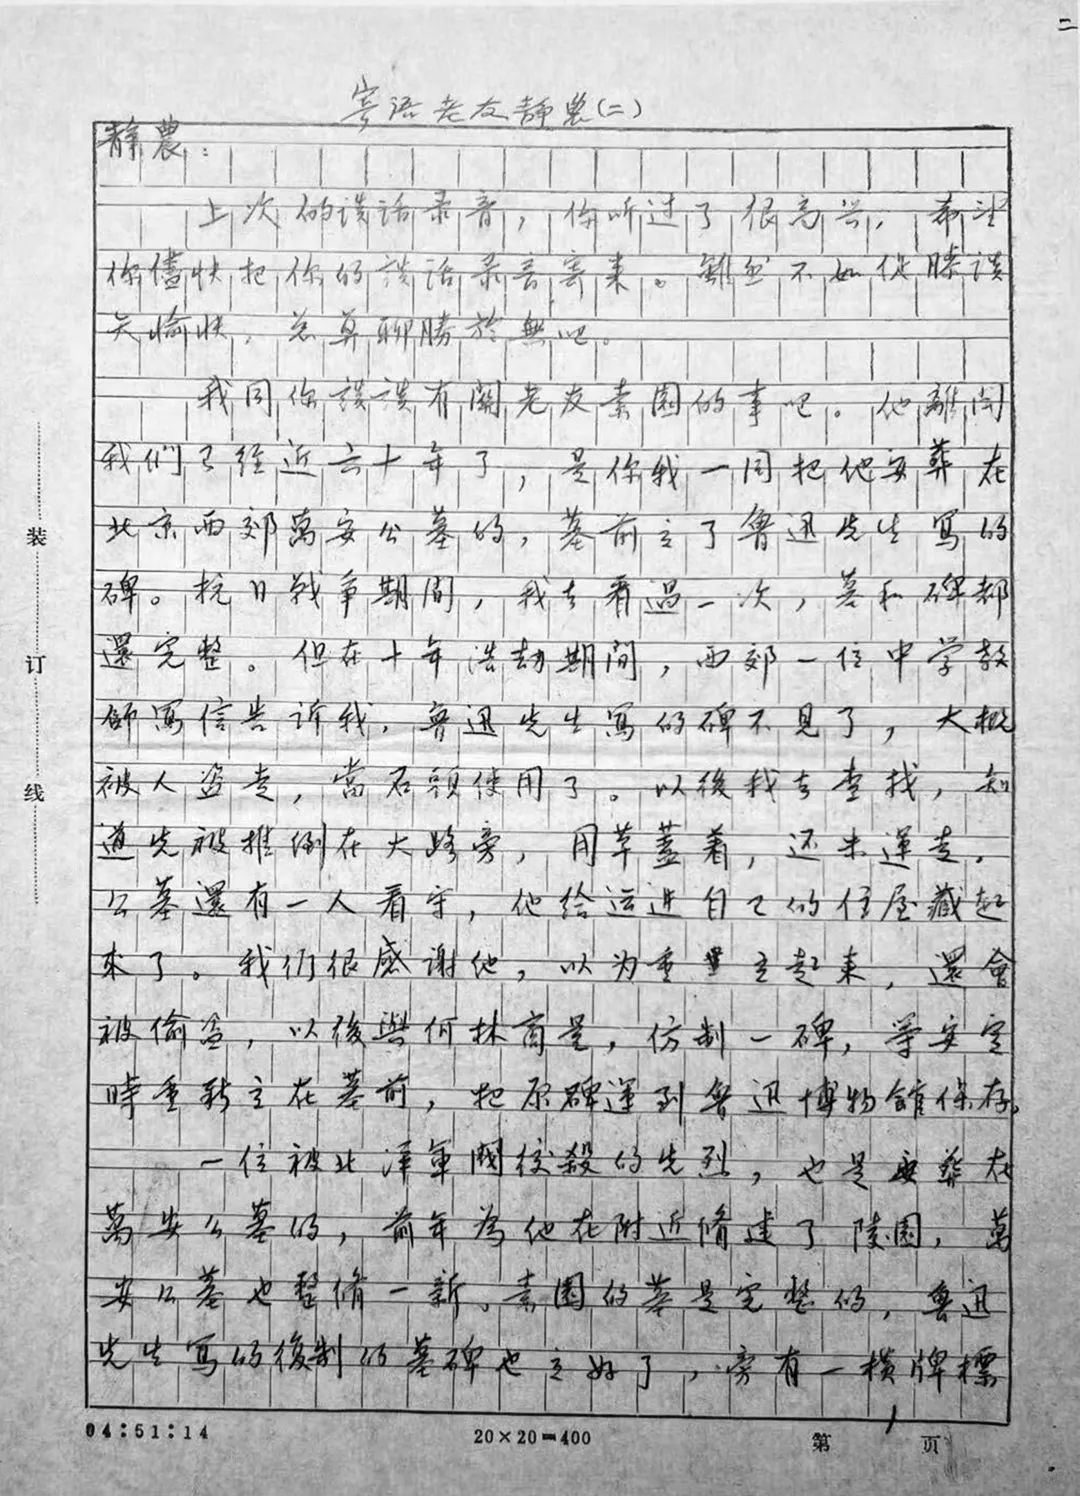 二
寄语老友静農(二)
静農：
上次的谈话录音，你听过了很高兴，希望
你儘快把你的談话录音寄来。雖然不如促膝談
天愉快，总算聊勝於無吧。
我同你談談有關老友素園的事吧。他離開
我们已经近六十年了，是你我一同把他安葬在
北京西郊萬安公墓的，墓前立了魯迅先生寫的
碑。抗日戰争期間，我去看過一次，墓和碑都
還完整。但在十年浩劫期间，西郊一位中学教
師寫信告诉我，魯迅先生寫的碑不見了，大概
被人盗走，當石頭使用了。以後我去查找，知
道先被推倒在大路旁，用草蓋着，还未運走。
公墓還有一人看守，他给运进自己的住屋藏起
来了。我们很感谢他，以为重立起来，還會
被偷盗，以後與何林商量，仿制一碑，等安定
時重新立在墓前，把原碑運到魯迅博物館保存。
一位被北洋軍閥绞殺的先烈，也是安葬在
萬安公墓的，前年為他在附近脩建了陵園，萬
安公墓也整脩一新。素園的墓是完整的，魯迅
先生寫的復制的墓碑也立好了，旁有一横牌標
装
订
线
04:51:14
20×20=400
第 1 页